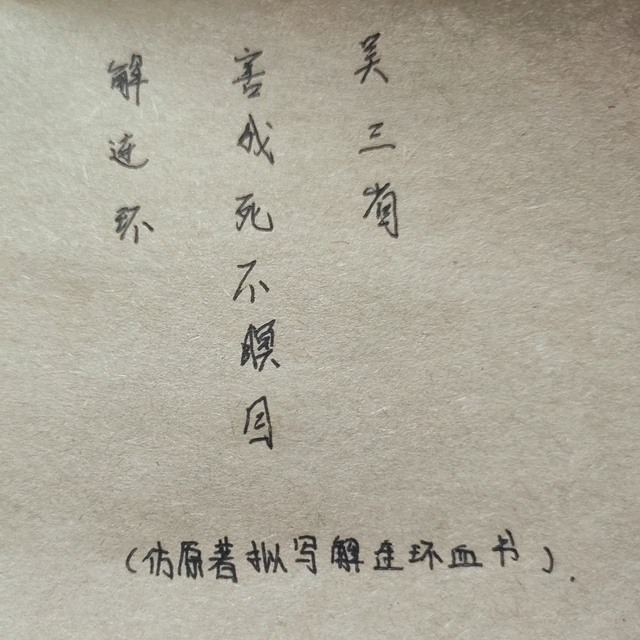 吴三省
害我死不瞑目
解连环
(仿原著拟写解连环血书).